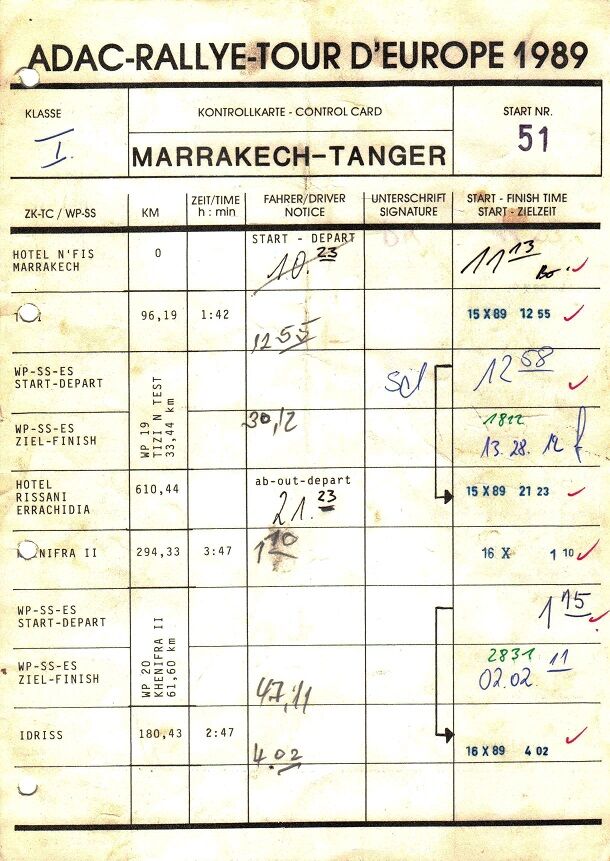 ADAC-RALLYE-TOUR D'EUROPE 1989
KLASSE
I.
KONTROLLKARTE - CONTROL CARD
MARRAKECH-TANGER
START NR.
51
ZK-TC / WP-SS
KM
ZEIT/TIME
h : min
FAHRER/DRIVER
NOTICE
UNTERSCHRIFT
SIGNATURE
START - FINISH TIME
START - ZIELZEIT
HOTEL N'FIS
MARRAKECH
0
START - DEPART
10.23
11 13
96,19
1:42
12 55
15 X 89 12 55
WP-SS-ES
START-DEPART
WP 19
TIZI N TEST
33,44 km
12 58
WP-SS-ES
ZIEL-FINISH
30,2
1822
13.28.12
HOTEL
RISSANI
ERRACHIDIA
610,44
ab-out-depart
21.23
15 X 89 21 23
KHENIFRA II
294,33
3:47
1 10
16 X 1 10
WP-SS-ES
START-DEPART
WP 20
KHENIFRA II
61,60 km
1 15
WP-SS-ES
ZIEL-FINISH
47,11
2831
02.02 11
IDRISS
180,43
2:47
4.02
16 X 89 4 02